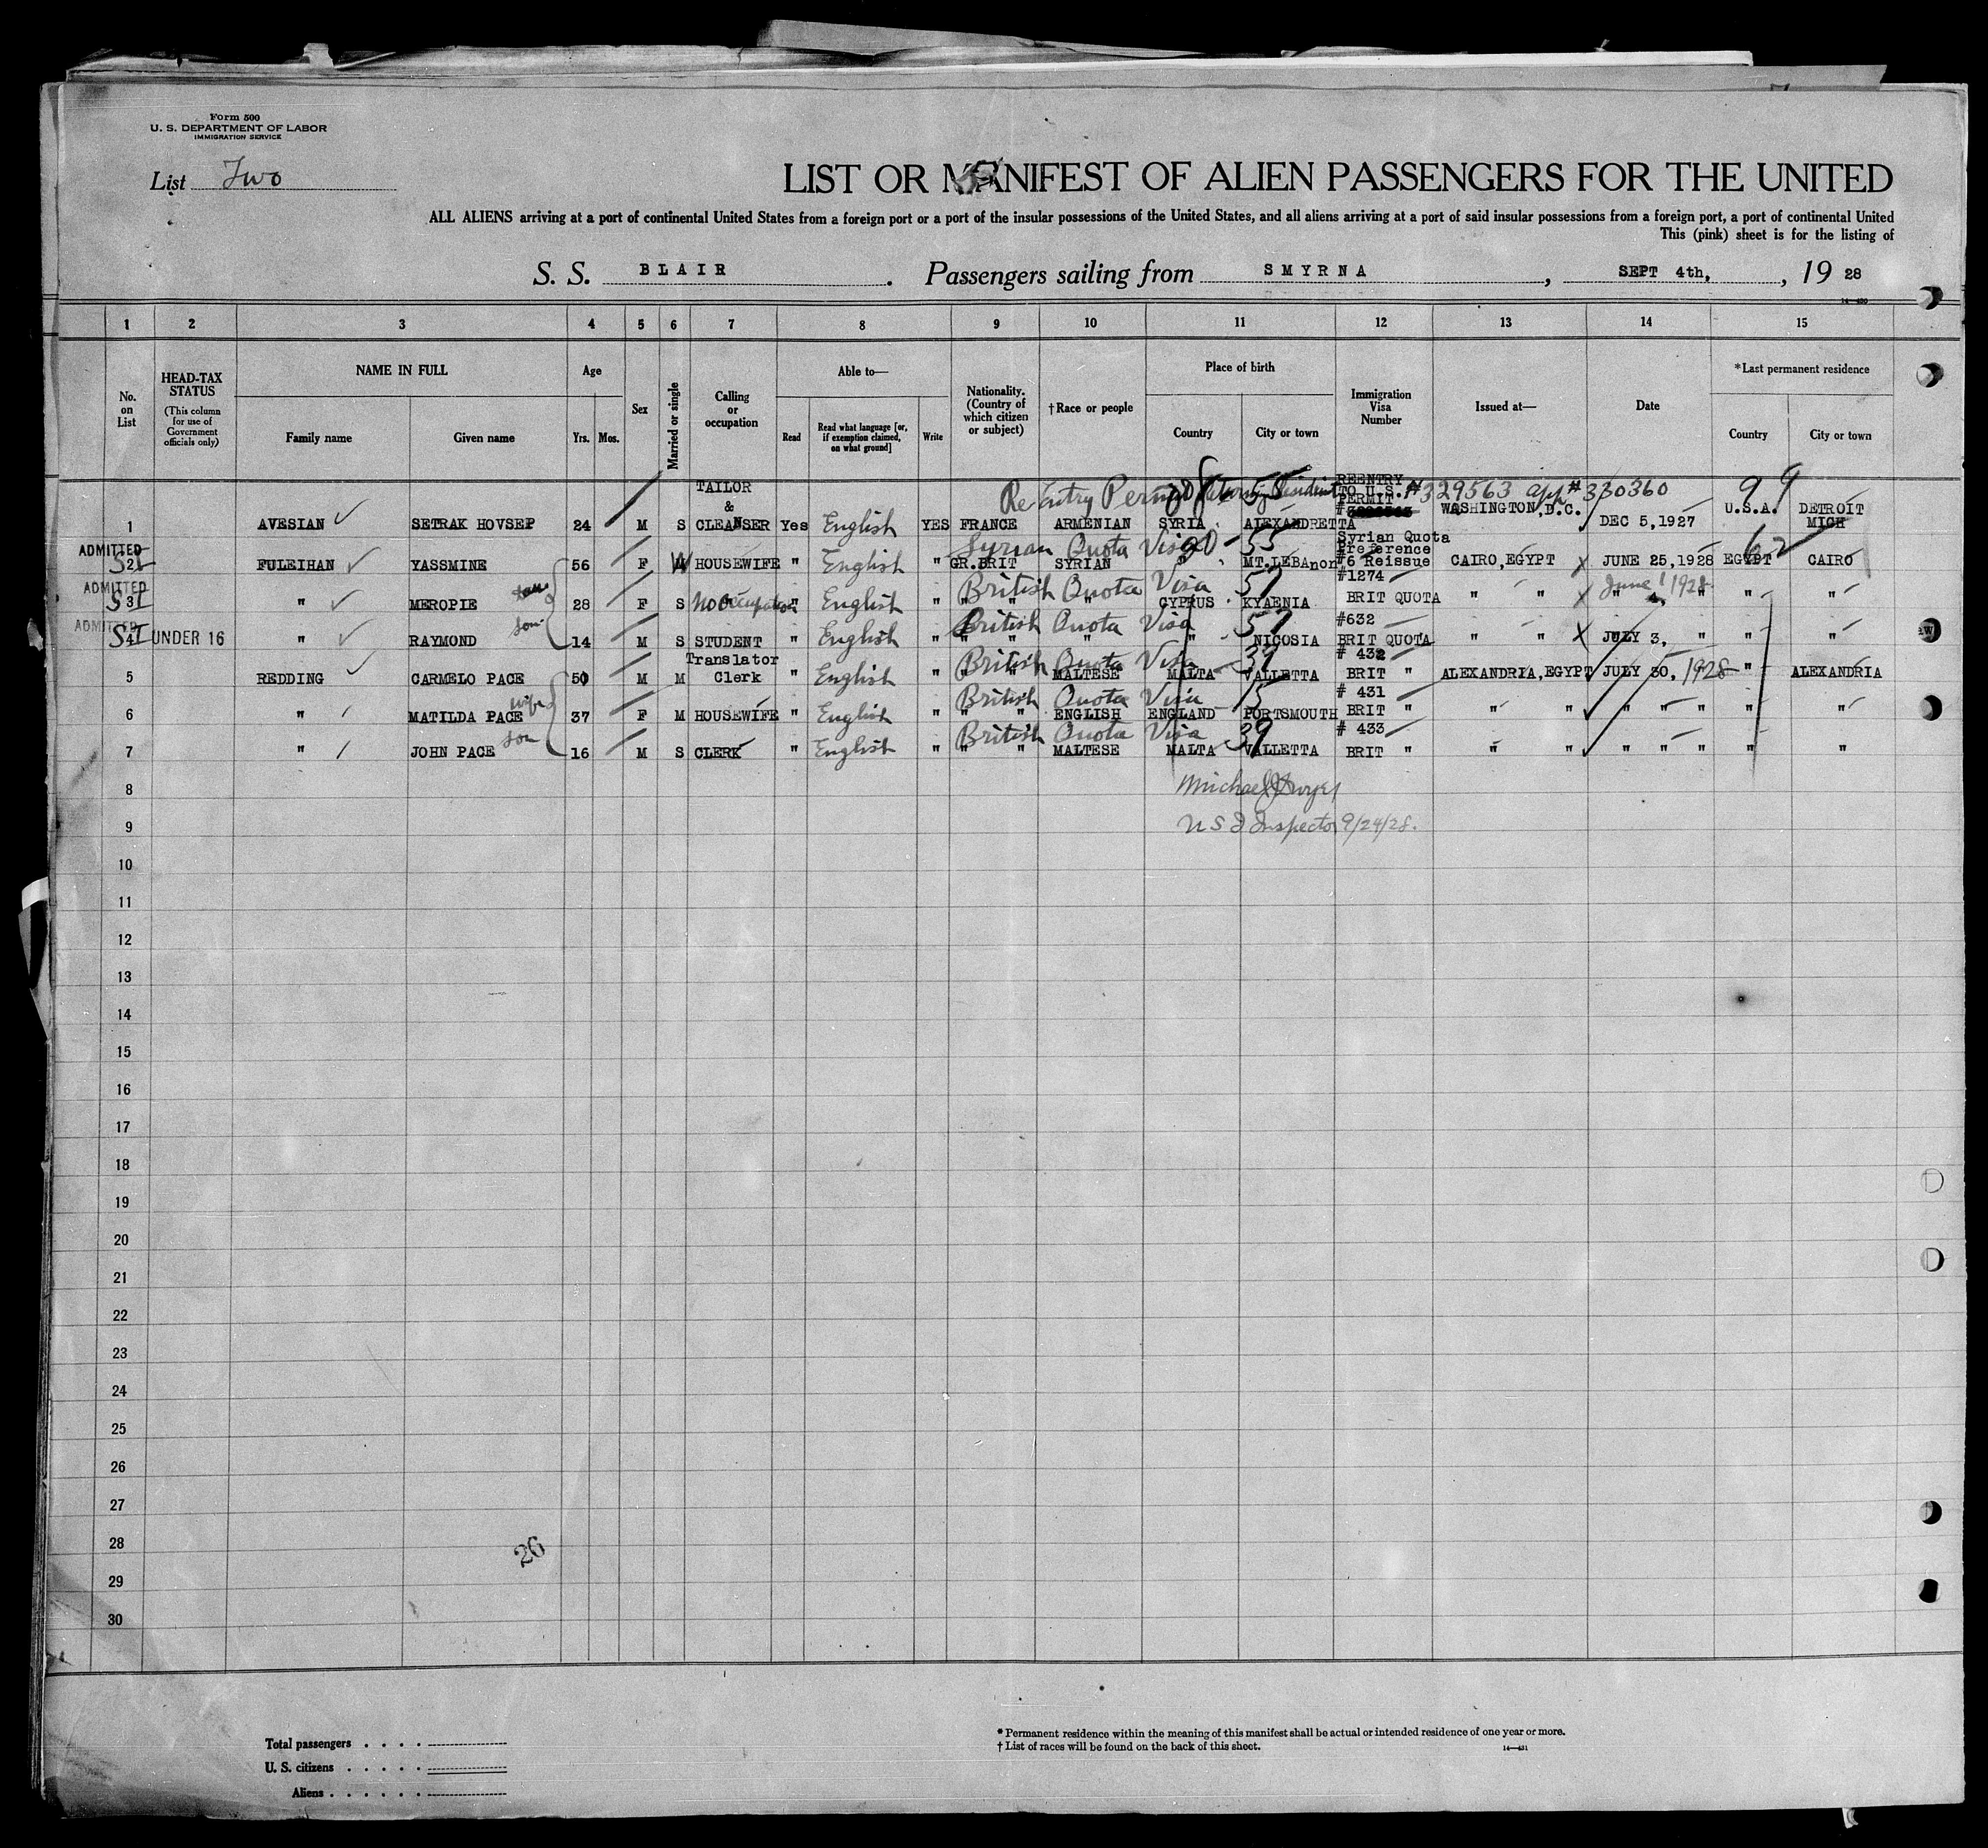 Form 500
U. S. DEPARTMENT OF LABOR
IMMIGRATION SERVICE
List Two
LIST OR MANIFEST OF ALIEN PASSENGERS FOR THE UNITED
ALL ALIENS arriving at a port of continental United States from a foreign port or a port of the insular possessions of the United States, and all aliens arriving at a port of said insular possessions from a foreign port, a port of continental United
This (pink) sheet is for the listing of
S. S. BLAIR. Passengers sailing from SMYRNA, SEPT 4th, , 19 28
1 2 3 4 5 6 7 8 9 10 11 12 13 14 15
No. on List
HEAD-TAX STATUS
(This column for use of Government officials only)
NAME IN FULL
Family name
Given name
Age
Yrs. Mos.
Sex
Married or single
Calling or occupation
Able to—
Read
Read what language [or, if exemption claimed, on what ground]
Write
Nationality. (Country of which citizen or subject)
† Race or people
Place of birth
Country
City or town
Immigration Visa Number
Issued at—
Date
*Last permanent residence
Country
City or town
Re Entry Permit REENTRY TO U.S. PERMIT # #329563 app# 330360 99
1 AVESIAN SETRAK HOVSEP 24 M S TAILOR & CLEANSER Yes English YES FRANCE ARMENIAN SYRIA ALEXANDRETTA WASHINGTON, D.C. DEC 5, 1927 U.S.A. DETROIT MICH
Syrian Quota Visa 90 - 55 Syrian Quota 62
ADMITTED SI 2 FULEIHAN YASSMINE 56 F W HOUSEWIFE " English " GR.BRIT SYRIAN MT.LEBAnon #6 Reissue CAIRO, EGYPT JUNE 25, 1928 EGYPT CAIRO
British Quota Visa 57 #1274 June 1 1928
ADMITTED SI 3 " MEROPIE 28 F S No Occupation " English " " " " CYPRUS KYAENIA BRIT QUOTA " " " " " "
British Quota Visa 57 #632
ADMITTED SI 4 UNDER 16 " son RAYMOND 14 M S STUDENT " English " " " " " NICOSIA BRIT QUOTA " " JULY 3, " " "
British Quota Visa 39 # 432
5 REDDING CARMELO PACE 50 M M Translator Clerk " English " " " MALTESE MALTA VALLETTA BRIT " ALEXANDRIA, EGYPT JULY 30, 1928 " ALEXANDRIA
British Quota Visa 15 # 431
6 " MATILDA PACE wife 37 F M HOUSEWIFE " English " " " ENGLISH ENGLAND PORTSMOUTH BRIT " " " " " " " "
British Quota Visa 39 # 433
7 " JOHN PACE son 16 M S CLERK " English " " " MALTESE MALTA VALLETTA BRIT " " " " " " " "
8 Michael J Dwyer
9 U S I Inspector 9/24/28.
10
11
12
13
14
15
16
17
18
19
20
21
22
23
24
25
26
27
28 26
29
30
Total passengers . . . .
U. S. citizens . . . . .
Aliens . . . . . .
* Permanent residence within the meaning of this manifest shall be actual or intended residence of one year or more.
† List of races will be found on the back of this sheet.
14—431